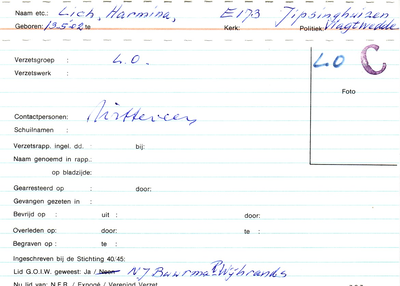 Naam etc.: Lich, Harmina, E173 Jipsinghuizen
Geboren: 19.5.02 te Kerk: Politiek: Vlagtwedde
Verzetsgroep : L.O. LO C
Verzetswerk :
Foto
Contactpersonen: Witteveen
Schuilnamen :
Verzetsrapp. ingel. dd. : bij:
Naam genoemd in rapp.:
op bladzijde:
Gearresteerd op : door:
Gevangen gezeten in :
Bevrijd op : uit : door:
Overleden op: door: te :
Begraven op : te :
Ingeschreven bij de Stichting 40/45:
Lid G.O.I.W. geweest: Ja / Neen NJ Buurma Wijbrands
Nu lid van: N.F.R. / Expogé / Verenigd Verzet